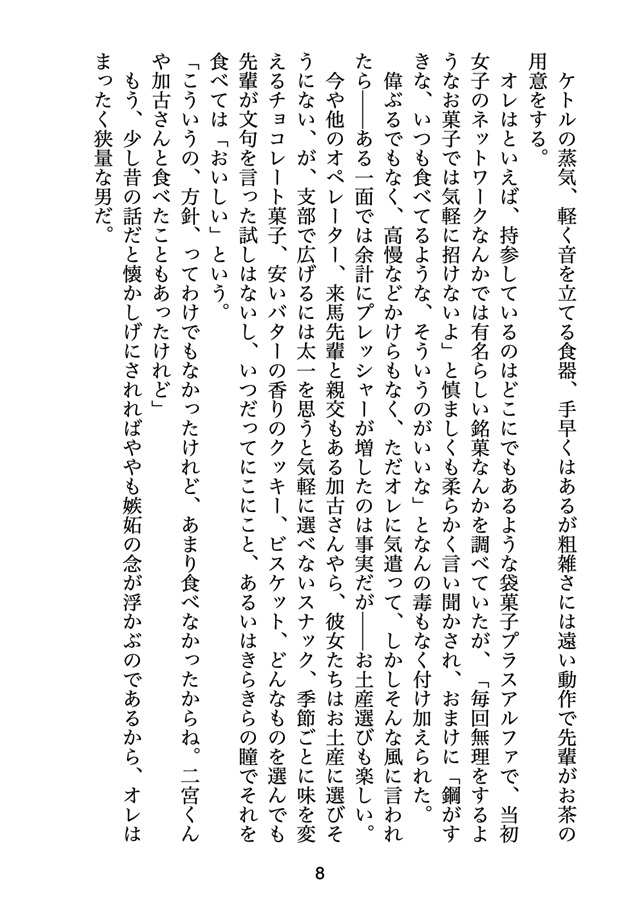 ケトルの蒸気、軽く音を立てる食器、手早くはあるが粗雑さには遠い動作で先輩がお茶の
用意をする。
　オレはといえば、持参しているのはどこにでもあるような袋菓子プラスアルファで、当初
女子のネットワークなんかでは有名らしい銘菓なんかを調べていたが、「毎回無理をするよ
うなお菓子では気軽に招けないよ」と慎ましくも柔らかく言い聞かされ、おまけに「鋼がす
きな、いつも食べてるような、そういうのがいいな」となんの毒もなく付け加えられた。
　偉ぶるでもなく、高慢などかけらもなく、ただオレに気遣って、しかしそんな風に言われ
たら――ある一面では余計にプレッシャーが増したのは事実だが――お土産選びも楽しい。
　今や他のオペレーター、来馬先輩と親交もある加古さんやら、彼女たちはお土産に選びそ
うにない、が、支部で広げるには太一を思うと気軽に選べないスナック、季節ごとに味を変
えるチョコレート菓子、安いバターの香りのクッキー、ビスケット、どんなものを選んでも
先輩が文句を言った試しはないし、いつだってにこにこと、あるいはきらきらの瞳でそれを
食べては「おいしい」という。
「こういうの、方針、ってわけでもなかったけれど、あまり食べなかったからね。二宮くん
や加古さんと食べたこともあったけれど」
　もう、少し昔の話だと懐かしげにされればややも嫉妬の念が浮かぶのであるから、オレは
まったく狭量な男だ。
8